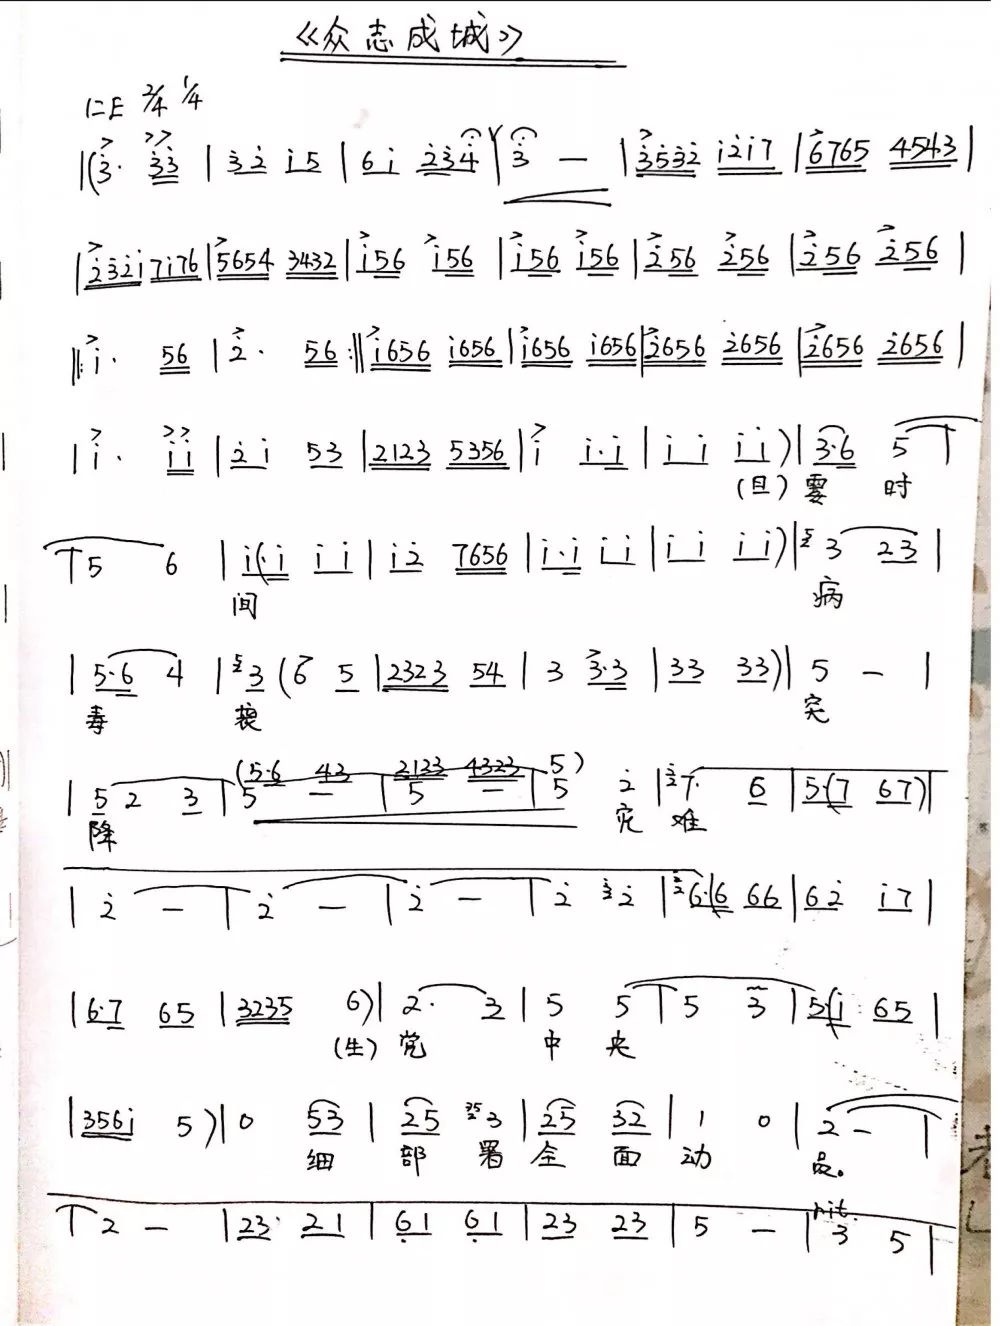 《众志成城》
1=E 2/4 1/4
|(3· 33 | 32 i5 | 6i 234 | 3 — | 3532 i2i7 | 6765 4543 |
| 232i 7i76 | 5654 3432 | i56 i56 | i56 i56 | 256 256 | 256 256 |
‖: i· 56 | 2· 56 :‖ i656 i656 | i656 i656 | 2656 2656 | 2656 2656 |
| i· ii | 2i 53 | 2123 5356 | i i·i | ii ii ) | 3·6 5 |
(旦) 霎 时
5 6 | i(·i ii | i2 7656 | i·i ii | ii ii ) | 3 23 |
间 病
| 5·6 4 | 3 (6 5 | 2323 54 | 3 3·3 | 33 33 ) | 5 — |
毒 袭
(5·6 43 2123 4323 5)
| 5 2 3 | 5 — | 5 — | 5 2 | 7· 6 | 5·(7 67) |
降 难
| 2 — | 2 — | 2 — | 2 2 | 6·(6 66 | 62 i7 |
| 6·7 65 | 3235 6) | 2· 3 | 5 5 | 5 3 | 5·(i 65 |
(生) 党 中 央
| 356i 5 ) | 0 53 | 25 3 | 25 32 | 1 0 | 2 — |
细 部 署 全 面 动 员。
2 — | 23· 21 | 61 61 | 23 23 | 5 — | rit. 3 5 |